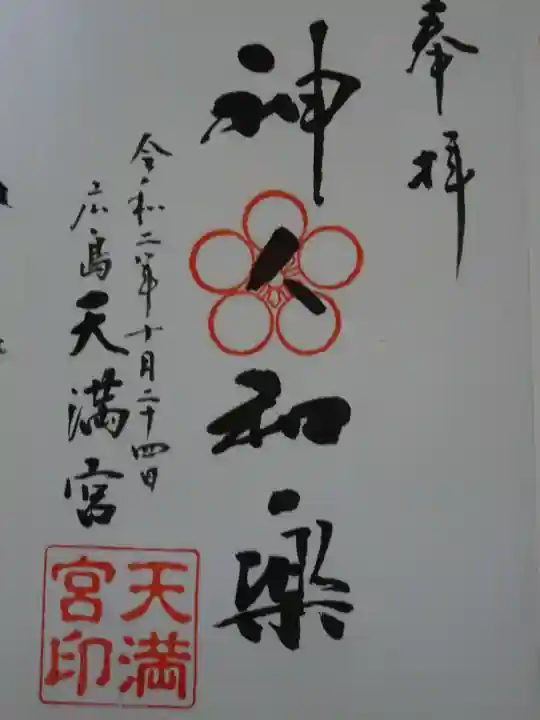 奉拝
神人和楽
令和二年十月二十四日
広島天満宮
天満
宮印